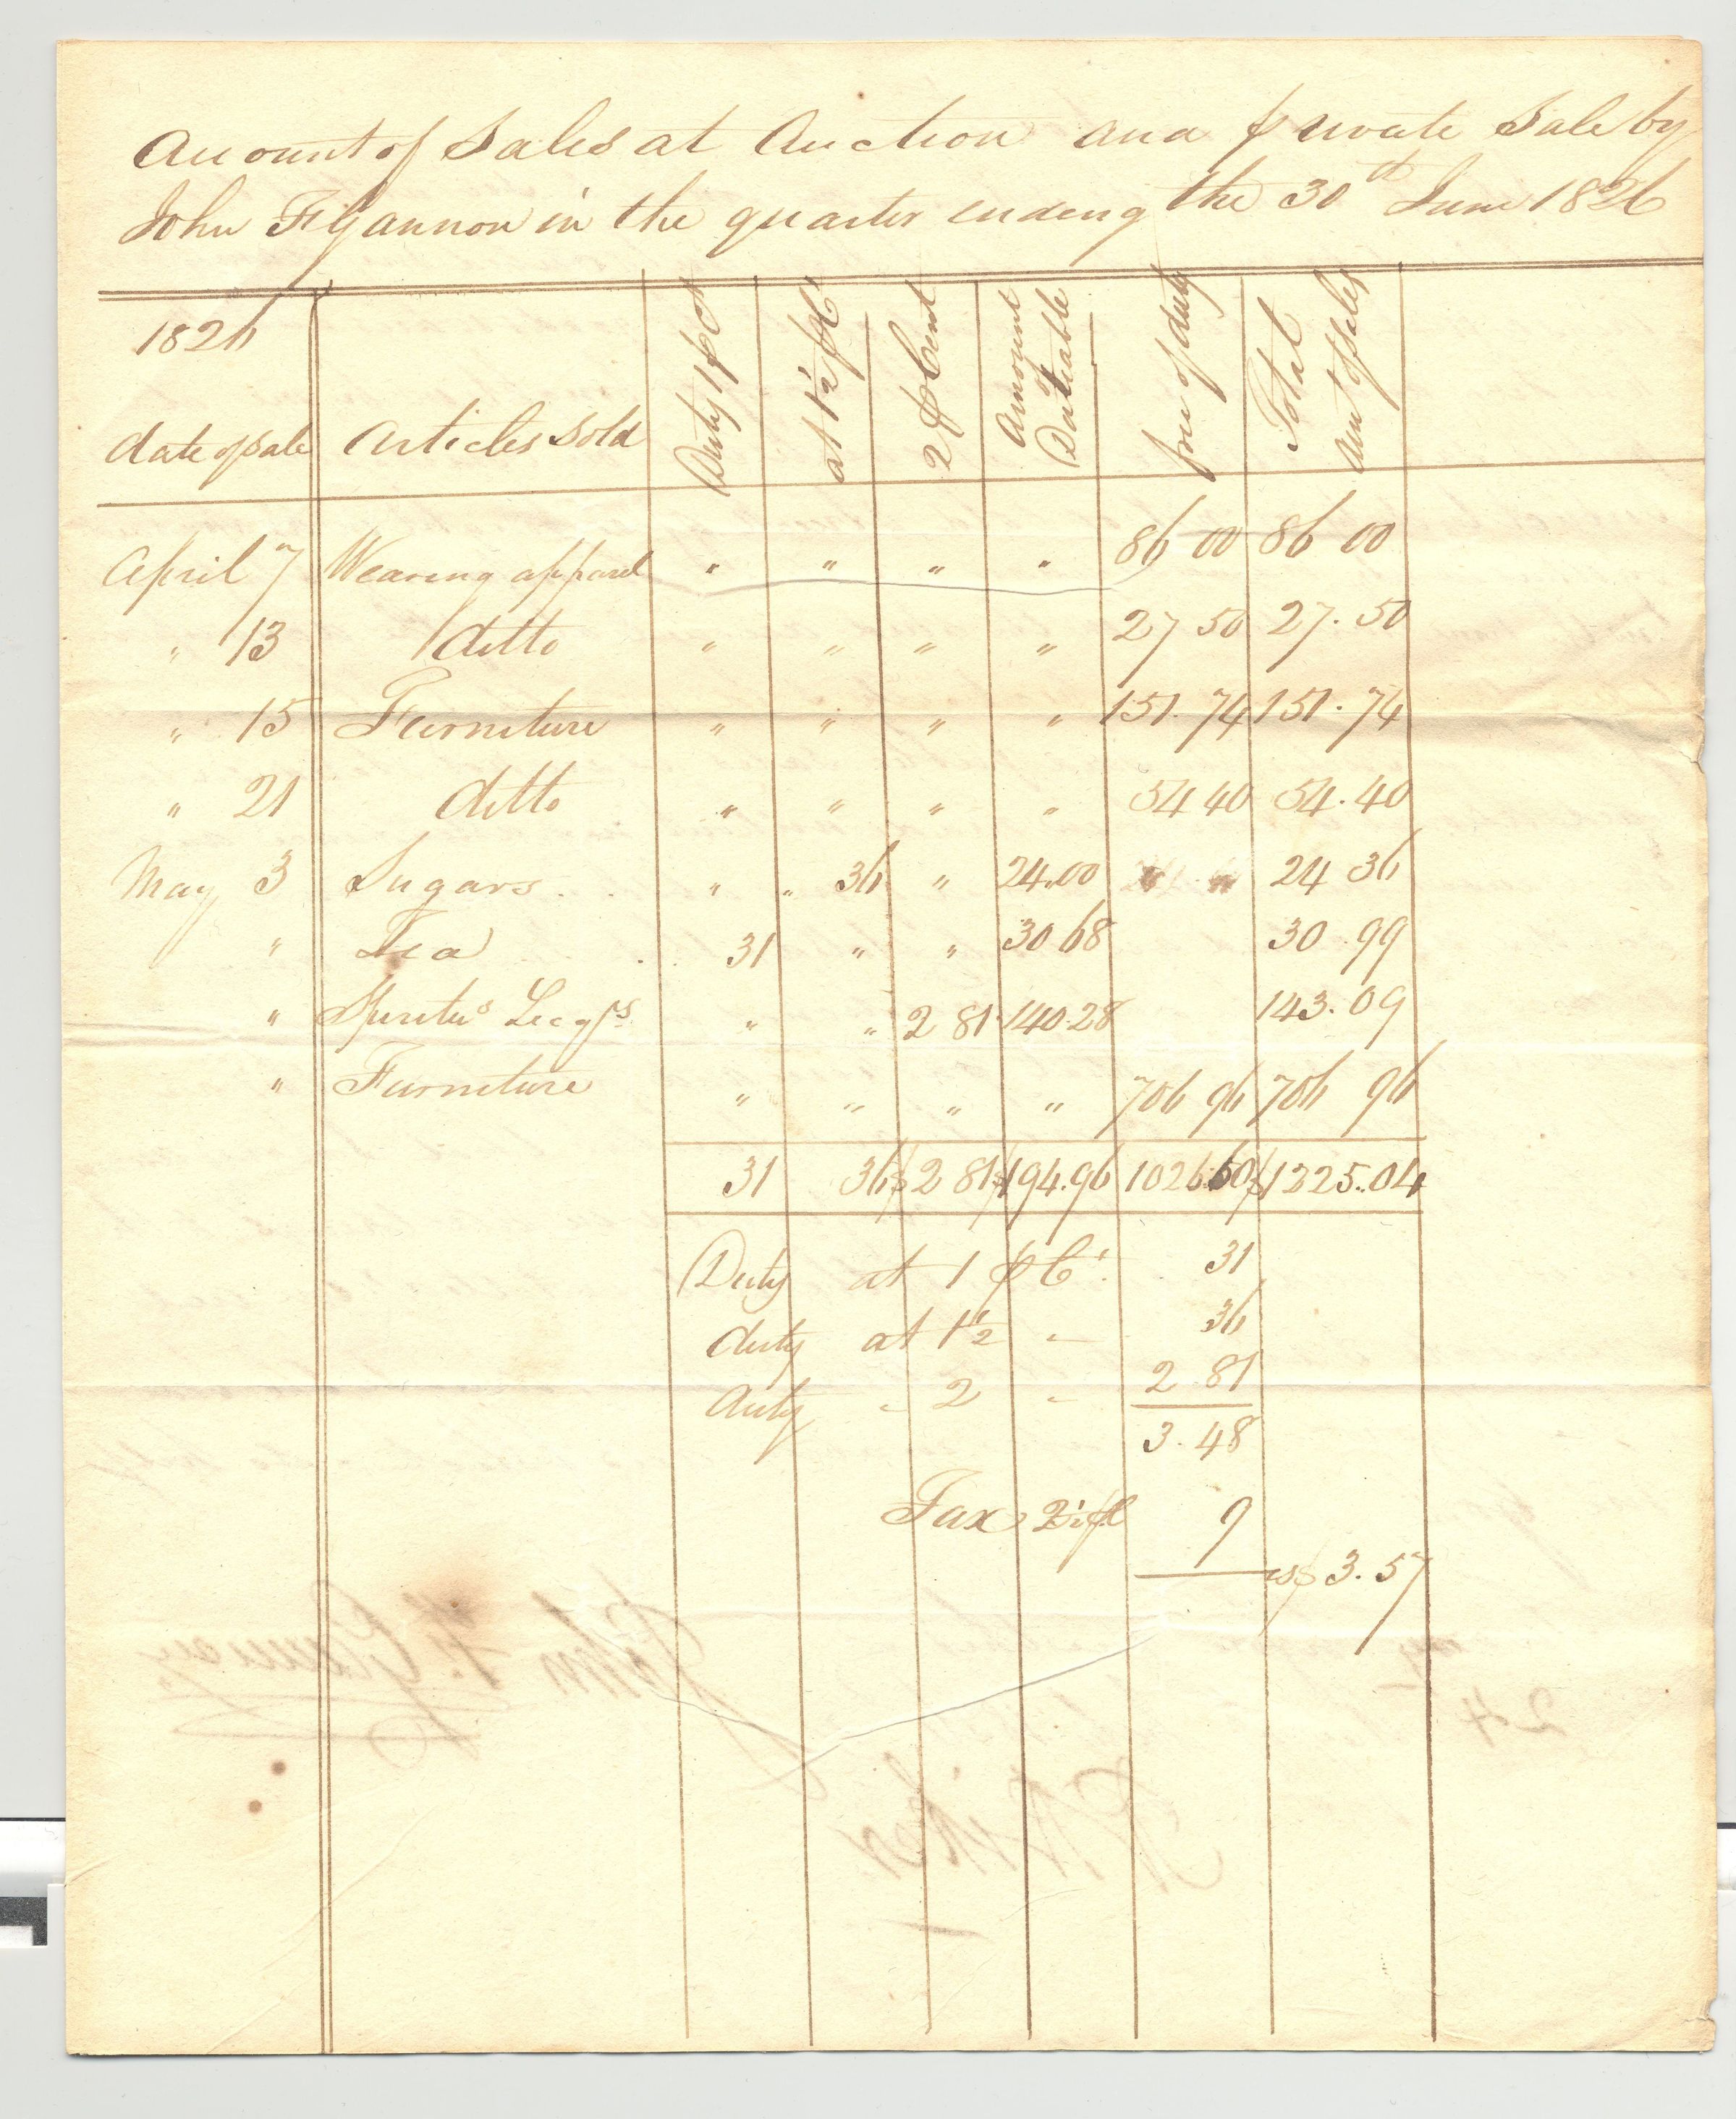 Account of Sales at Auction and private Sale by
John F Gannon in the quarter ending the 30th June 1826
1826
date of sale Articles Sold Duty 1 p Ct at 1½ p Ct 2 p Cent Amount of Dutiable free of duty Total amt of sales
April 7 Wearing apparel " " " " 86 00 86 00
" 13 ditto " " " " 27 50 27.50
" 15 Furniture " " " " 151.74 151.74
" 21 ditto " " " " 54 40 54.40
May 3 Sugars . . " " 36 " 24.00 " " 24 36
" Tea . . 31 " " 30 68 30.99
" " " 2 81 140.28 143.09
" Furniture " " " " 706 96 706 96
31 36 $2 81 $194.96 1026.60 $1225.04
Duty at 1 p Ct. 31
duty at 1½ " 36
duty " 2 " 2.81
3.48
Tax 9
$3.57
John F. Gannon
24